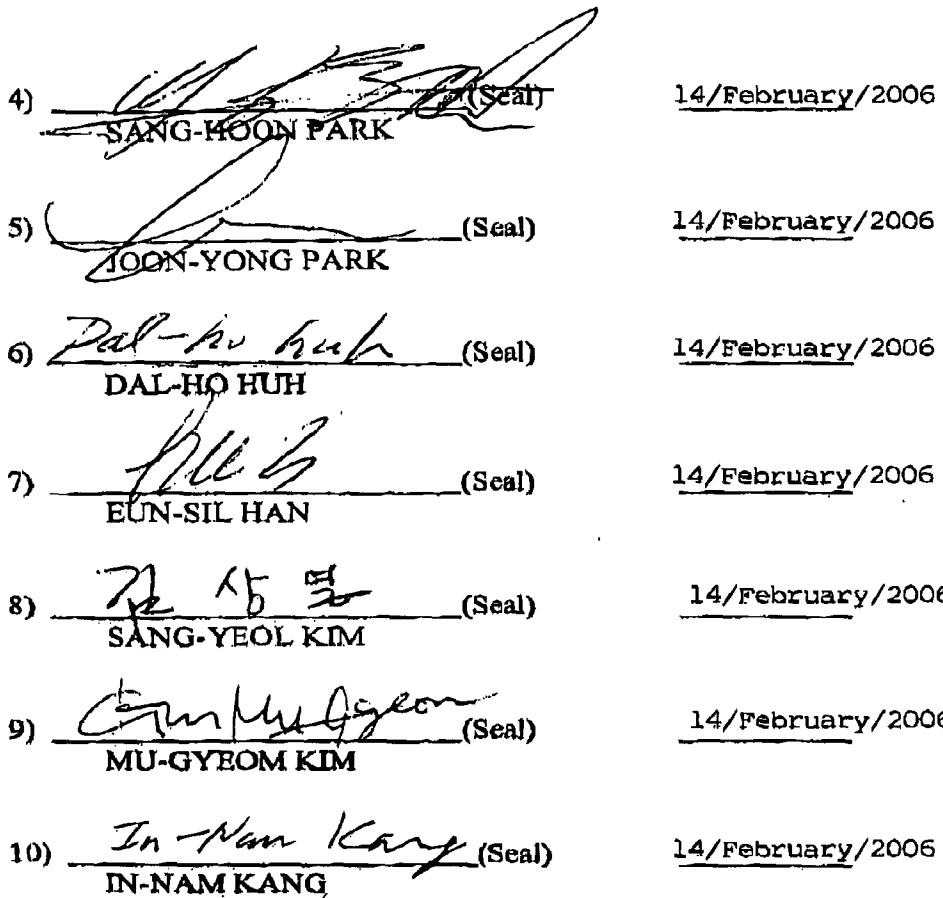 4) (Seal) 14/February/2006
SANG-HOON PARK
5) (Seal) 14/February/2006
JOON-YONG PARK
6) Dal-ho huh (Seal) 14/February/2006
DAL-HO HUH
7) (Seal) 14/February/2006
EUN-SIL HAN
8) 김 상 열 (Seal) 14/February/2006
SANG-YEOL KIM
9) Kim Mu Gyeom (Seal) 14/February/2006
MU-GYEOM KIM
10) In-Nam Kang (Seal) 14/February/2006
IN-NAM KANG